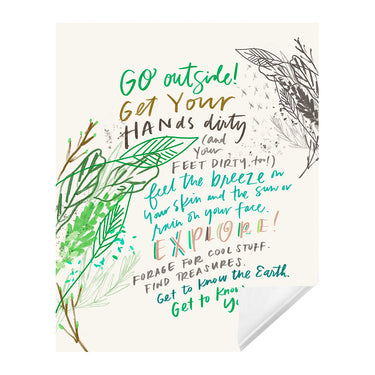 GO outside!
Get Your
HANds dirty
(and
your
FEET DIRTY, too!)
feel the breeze on
your skin and the sun or
rain on your face.
EXPLORE!
FORAGE FOR COOL STUFF.
FIND TREASURES.
Get to Know the Earth.
Get to